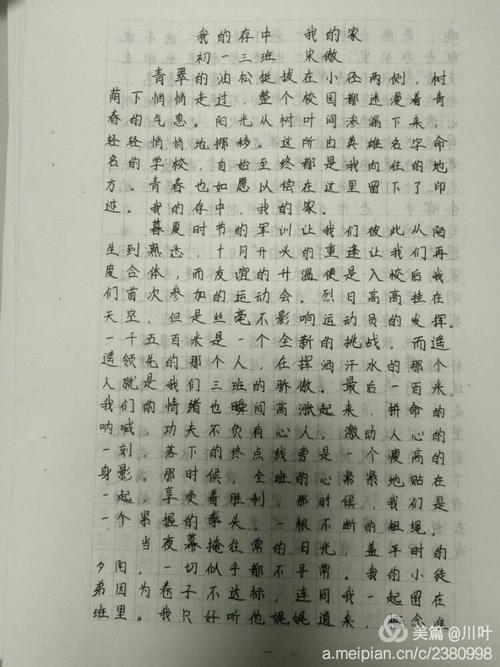 我的存中 我的家
初一三班 宋傲
青翠的油松挺拔在小径两侧,树
荫下悄悄走过,整个校园都迷漫着青
春的气息。阳光从树叶间渗漏下来,
轻轻悄悄地挪移。这所由英雄名字命
名的学校,自始至终都是我向往的地
方。青春也如愿以偿在这里留下了印
迹。我的存中,我的家。
暮夏时节的军训让我们彼此从陌
生到熟悉,十月开头的重逢让我们再
度合体,而友谊的升温便是入校后我
们首次参加的运动会。烈日高高挂在
天空,但是丝毫不影响运动员的发挥。
一千五百米是一个全新的挑战,而遥
遥领先的那个人,在挥洒汗水的那个
人就是我们三班的骄傲。最后一百米,
我们的情绪也瞬间高涨起来,拼命的
呐喊,功夫不负有心人,激动人心的
一刻,落下的终点线旁是一个瘦高的
身影。那时候,全班的心紧紧地贴在
一起,享受着胜利,那时候,我们是
一个紧握的拳头,一根不断的粗绳。
当夜幕掩住常的日光,盖平时的
夕阳,一切似乎都不寻常。我的小徒
弟因为卷子不达标,连同我一起困在
班里。我只好听他娓娓道来,念难
美篇@川叶
a.meipian.cn/c/2380998